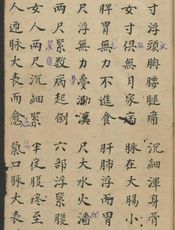 寸浮頭胸腰腿痛 沉細渾身骨
女寸俱無月家病 脉在大腸小
脾胃無力不進食 肝肺浮無胃
兩尺浮無力夢 漢 尺大水火
兩尺緊数病起倒 六部浮緊脫
女人兩尺沉細緊 半夜腹疼至
人迎脉大表而愈 氣口脉大表